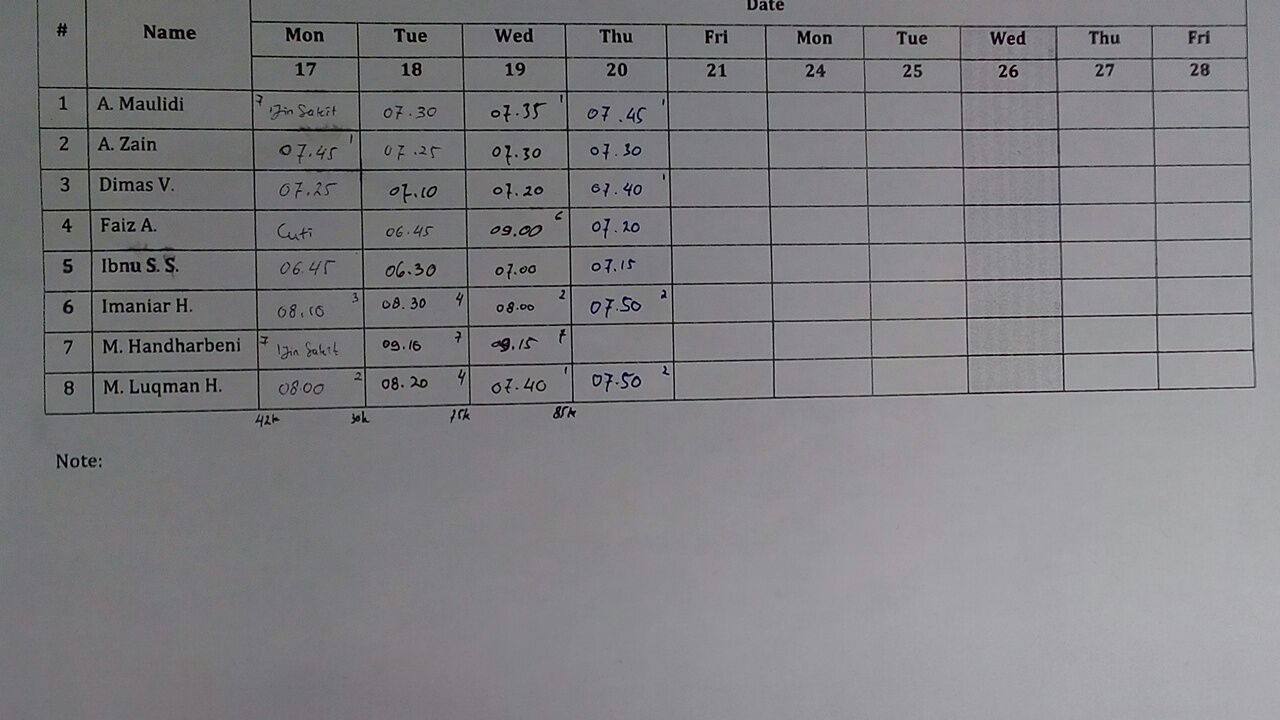 Date
# Name Mon Tue Wed Thu Fri Mon Tue Wed Thu Fri
17 18 19 20 21 24 25 26 27 28
1 A. Maulidi 7 Ijin Sakit 07.30 07.35 1 07.45 1
2 A. Zain 07.45 1 07.25 07.30 07.30
3 Dimas V. 07.25 07.10 07.20 07.40 1
4 Faiz A. Cuti 06.45 09.00 6 07.20
5 Ibnu S. S. 06.45 06.30 07.00 07.15
6 Imaniar H. 08.10 3 08.30 4 08.00 2 07.50 2
7 M. Handharbeni 7 Ijin Sakit 09.16 7 09.15 7
8 M. Luqman H. 08.00 2 08.20 4 07.40 1 07.50 2
42k 30k 75k 85k
Note: